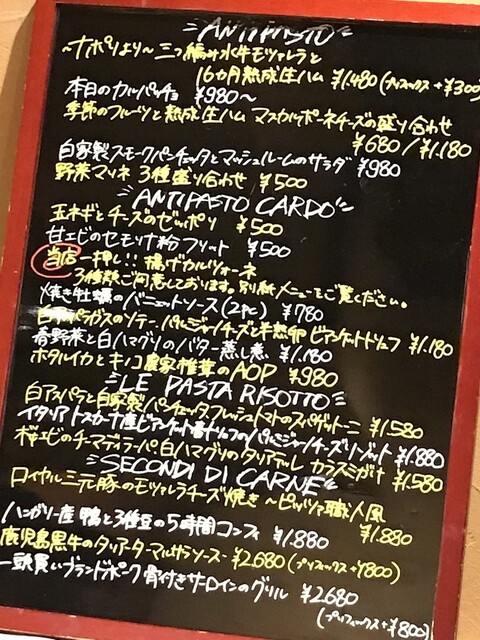 ANTIPASTO
〜ナポリより〜 三つ編み水牛モッツァレラと
16カ月熟成生ハム ¥1,480(プリフィックス+¥300)
本日のカルパッチョ ¥980〜
季節のフルーツと熟成生ハム マスカルポーネチーズの盛り合わせ
¥680/¥1,180
自家製スモークパンチェッタとマッシュルームのサラダ ¥980
野菜マリネ 3種盛り合わせ ¥500
ANTIPASTO CARDO
玉ネギとチーズのゼッポリ ¥500
甘エビのセモリナ粉フリット ¥500
当店一押し!! 揚げカルツォーネ
3種類ご用意しております。別紙メニューをご覧ください。
焼き牡蠣のバニェットソース(2pc) ¥780
白アスパラガスのソテー パルミジャーノチーズと半熟卵 ビアンケットトリュフ ¥1,180
春野菜と白ハマグリのバター蒸し煮 ¥1,180
ホタルイカとキノコ農家椎茸のAOP ¥980
LE PASTA RISOTTO
白アスパラと自家製パンチェッタ、フレッシュトマトのスパゲットーニ ¥1,580
イタリアトスカーナ産ビアンケット春トリュフのパルミジャーノチーズリゾット ¥1,880
桜エビのチーマディラーパ 白ハマグリのタリアテッレ カラスミがけ ¥1,580
SECONDI DI CARNE
ロイヤル三元豚のモッツァレラチーズ焼き〜ピッツァ職人風
¥1,880
ハンガリー産 鴨と3種豆の5時間コンフィ ¥1,880
鹿児島黒牛のタリアータ マルサラソース ¥2,680(プリフィックス+¥800)
一頭買いブランドポーク骨付きサーロインのグリル ¥2,680
(プリフィックス+¥800)